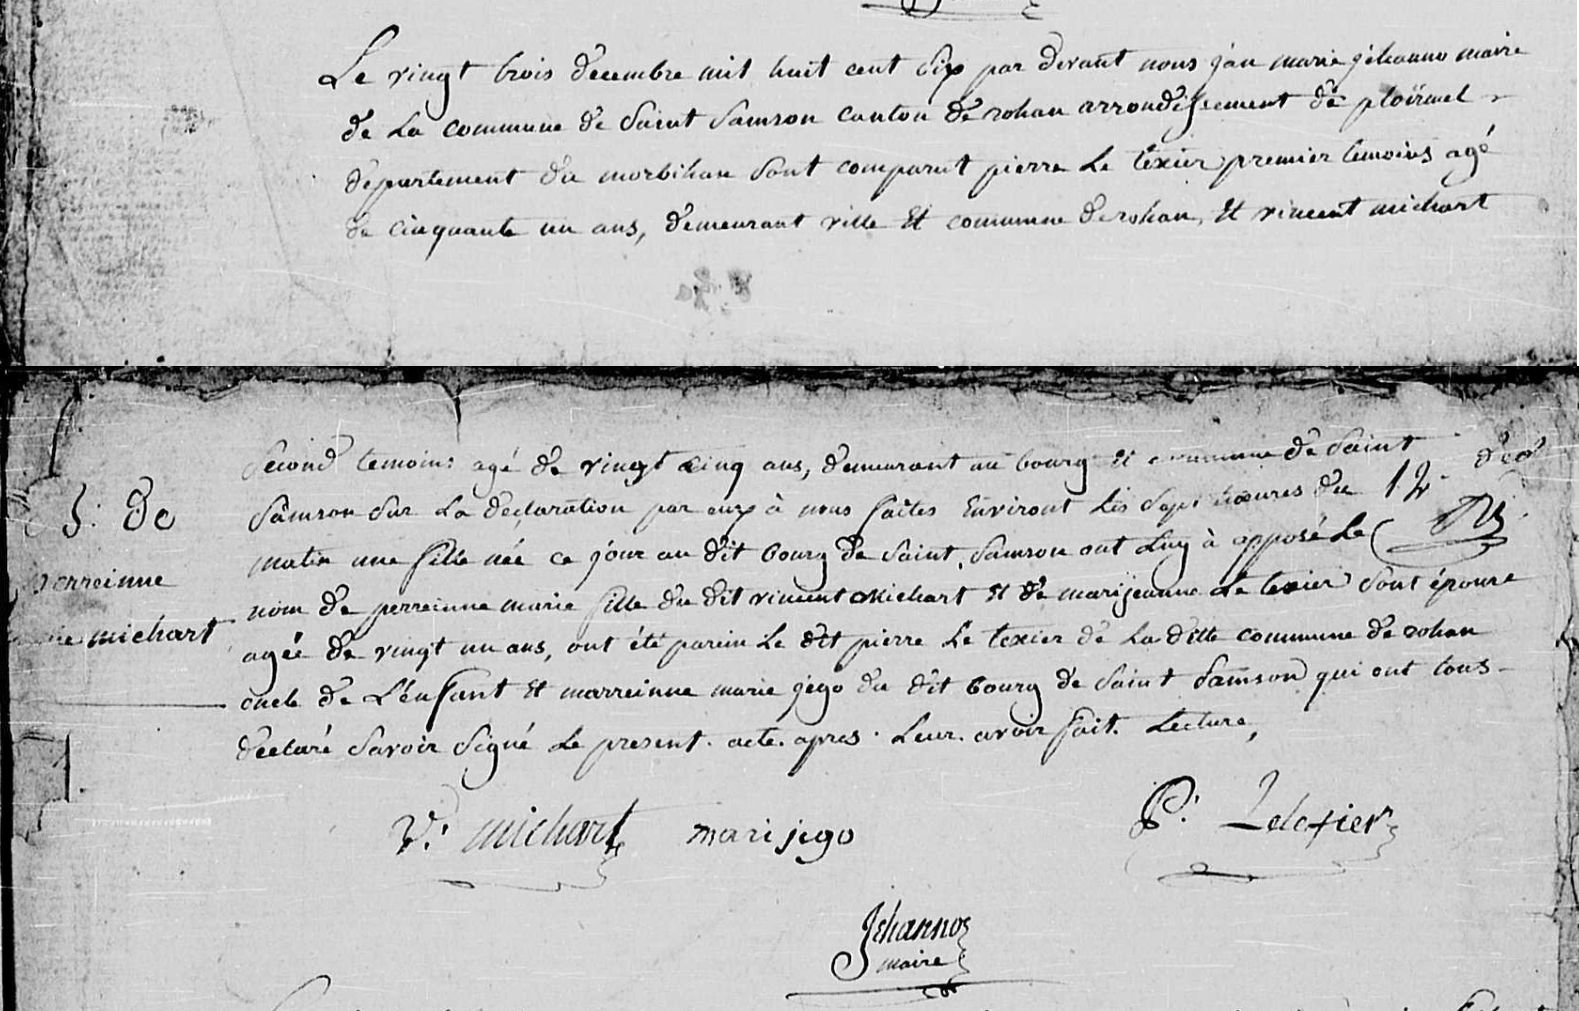 Le vingt trois decembre mil huit cent six par devant nous jan marie jéhanno maire
de La commune de Saint Samson canton de rohan arrondissement de ploërmel
département du morbihan sont comparut pierre Le texier premier temoins agé
de cinquante un ans, demeurant ville Et commune de rohan, Et vincent michart
second temoins agé de vingt cinq ans, demeurant au bourg Et commune de Saint
Samson Sur La déclaration par eux à nous faites Environt Les Sept hoeures du
matin une fille née ce jour au dit bourg de Saint Samson ont Luy à apposé Le
nom de perreinne marie fille du dit vincent Michart Et de marijeanne Le texier Sont épouse
agée de vingt un ans, ont été parein Le dit pierre Le texier de La dette commune de rohan
oncle de L'enfant Et marreinne marie jego du dit bourg de Saint Samson qui ont tous
déclaré Savoir Signé Le present acte apres Leur avoir fait Lecture,
perreinne
michart
12
V: michart
mari jego
P: Letexier
Jehanno
maire